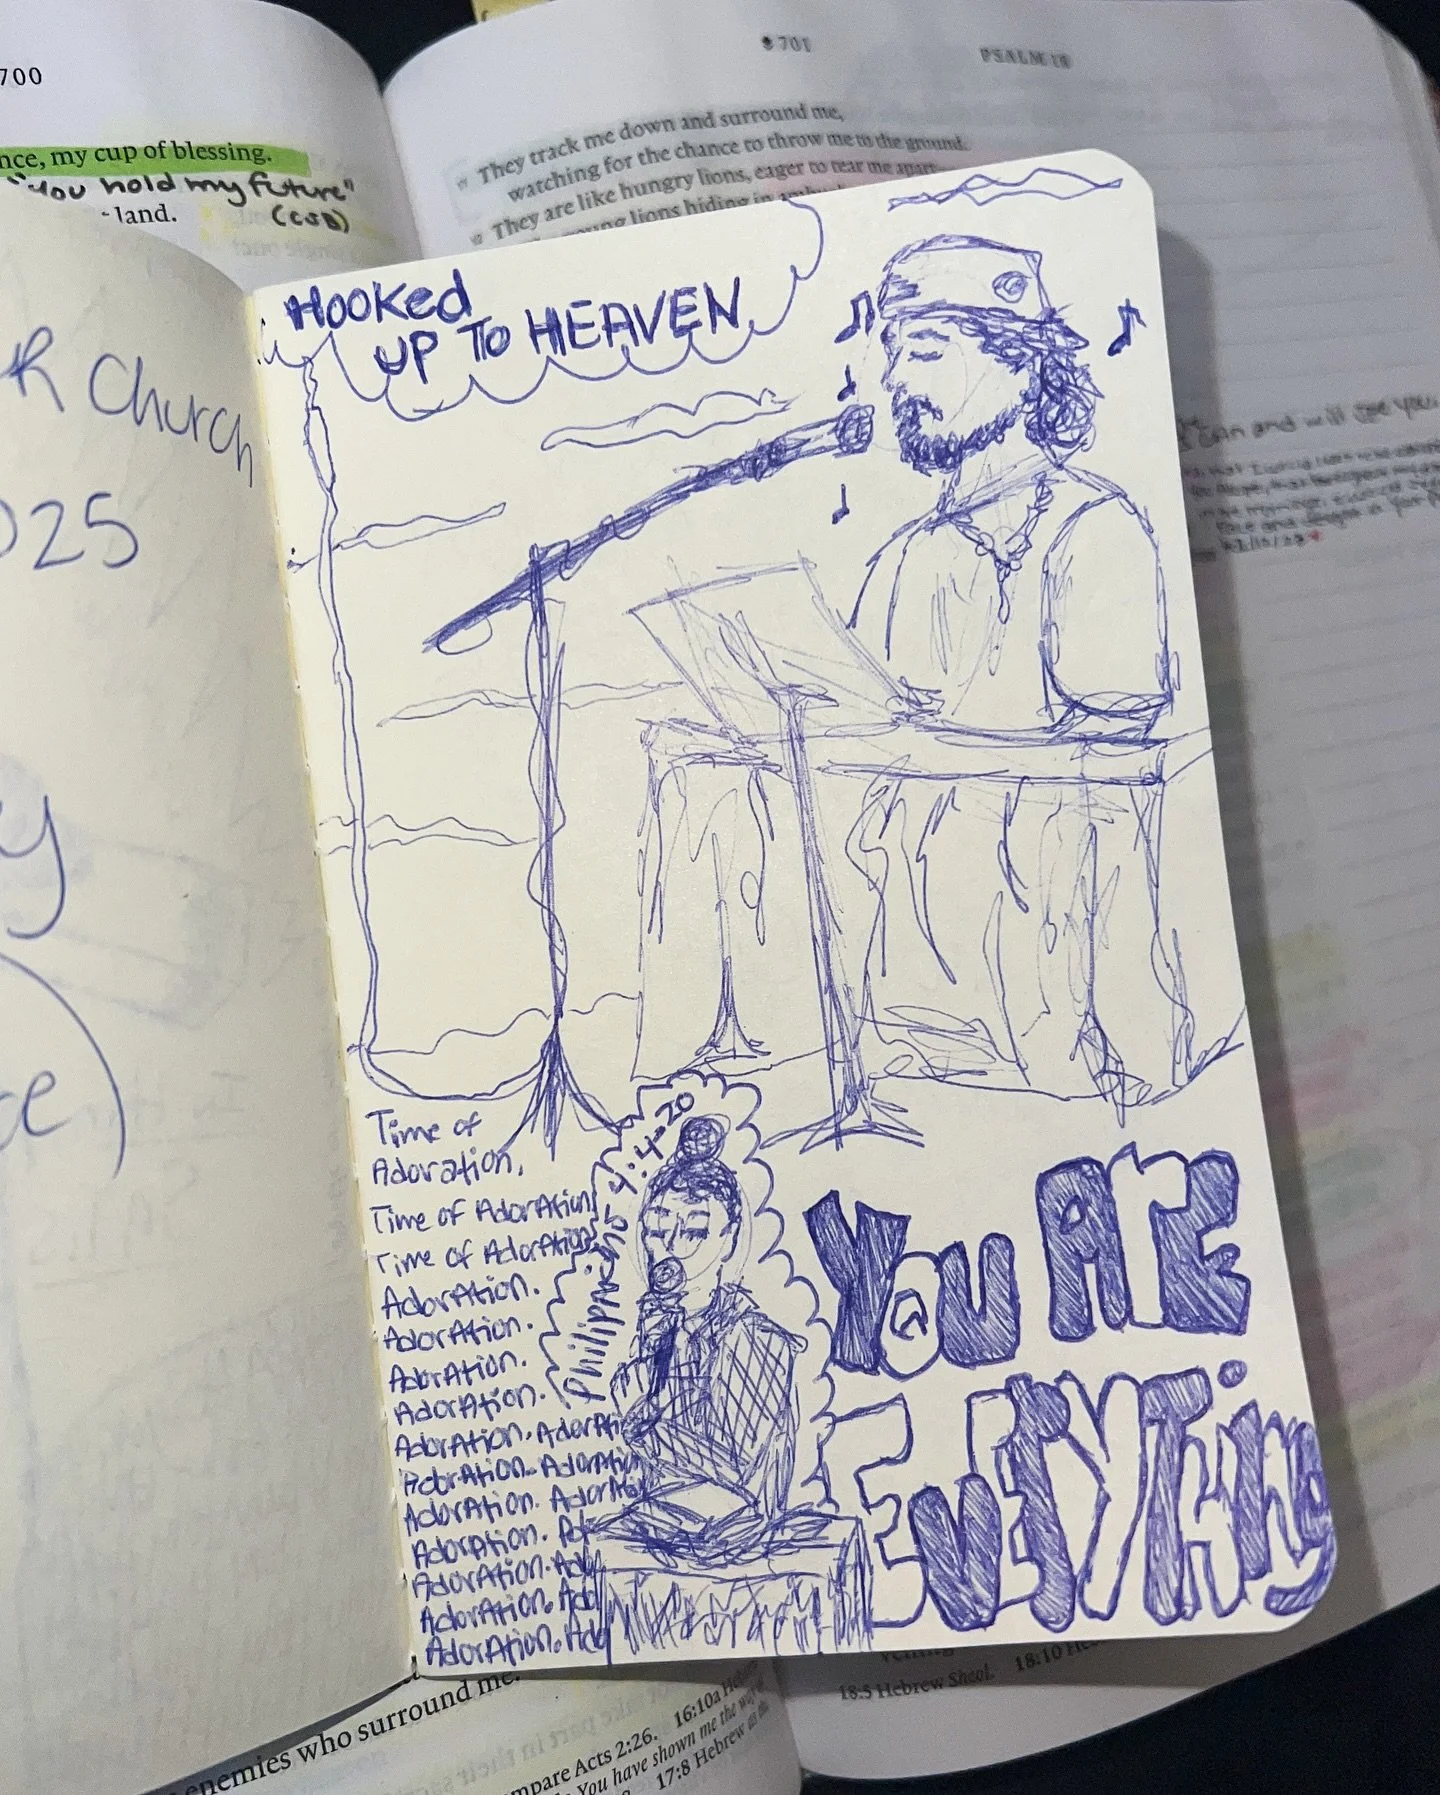 700
nce, my cup of blessing.
"You hold my future"
- land.
(CSB)
701
PSALM 18
They track me down and surround me,
watching for the chance to throw me to the ground.
They are like hungry lions, eager to tear me apart
young lions hiding in
R Church
025
y
ce)
HOOKed
UP TO HEAVEN
can and will see you.
Time of
Adoration.
Time of Adoration
Time of Adoration
Adoration.
Adoration.
Adoration.
Adoration.
Adoration. Adorati
Adoration. Adoratio
Adoration. Adorati
Adoration. Ad
Adoration. Ado
Adoration. Ado
Adoration. Ado
Philippians 4:4-20
YOU ARE
EVERYTHing
enemies who surround me.
mpare Acts 2:26. 16:10a Hebrew
You have shown me the way of
17:8 Hebrew as the
18:5 Hebrew Sheol. 18:10 He